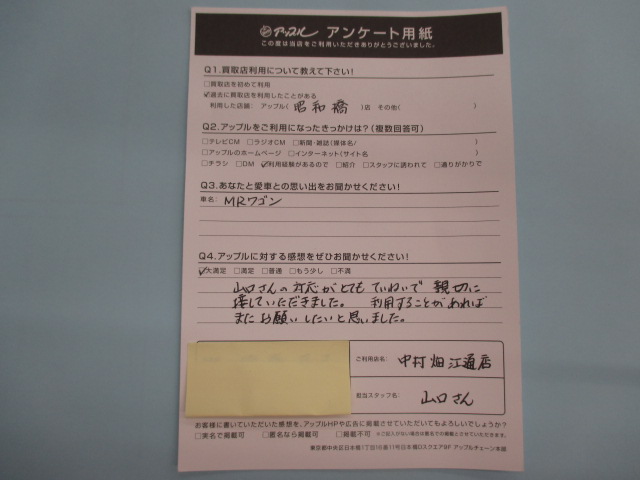 アップル アンケート用紙
この度は当店をご利用いただきありがとうございました。
Q1.買取店利用について教えて下さい!
□買取店を初めて利用
☑過去に買取店を利用したことがある
利用した店舗: アップル( 昭和橋 )店 その他( )
Q2.アップルをご利用になったきっかけは?(複数回答可)
□テレビCM □ラジオCM □新聞・雑誌(媒体名/ )
□アップルのホームページ □インターネット(サイト名 )
□チラシ □DM ☑利用経験があるので □紹介 □スタッフに誘われて □通りがかりで
Q3.あなたと愛車との思い出をお聞かせください!
車名: MRワゴン
Q4.アップルに対する感想をぜひお聞かせください!
☑大満足 □満足 □普通 □もう少し □不満
山口さんの対応がとてもていねいで 親切に
接していただきました。 利用することがあれば
またお願いしたいと思いました。
ご利用店名: 中村畑江通店
担当スタッフ名: 山口さん
お客様に書いていただいた感想を、アップルHPや広告に掲載させていただいてもよろしいでしょうか?
□実名で掲載可 □匿名なら掲載可 □掲載不可 ※ご記入がない場合は匿名での掲載とさせていただきます。
東京都中央区日本橋1丁目16番11号日本橋Dスクエア9F アップルチェーン本部